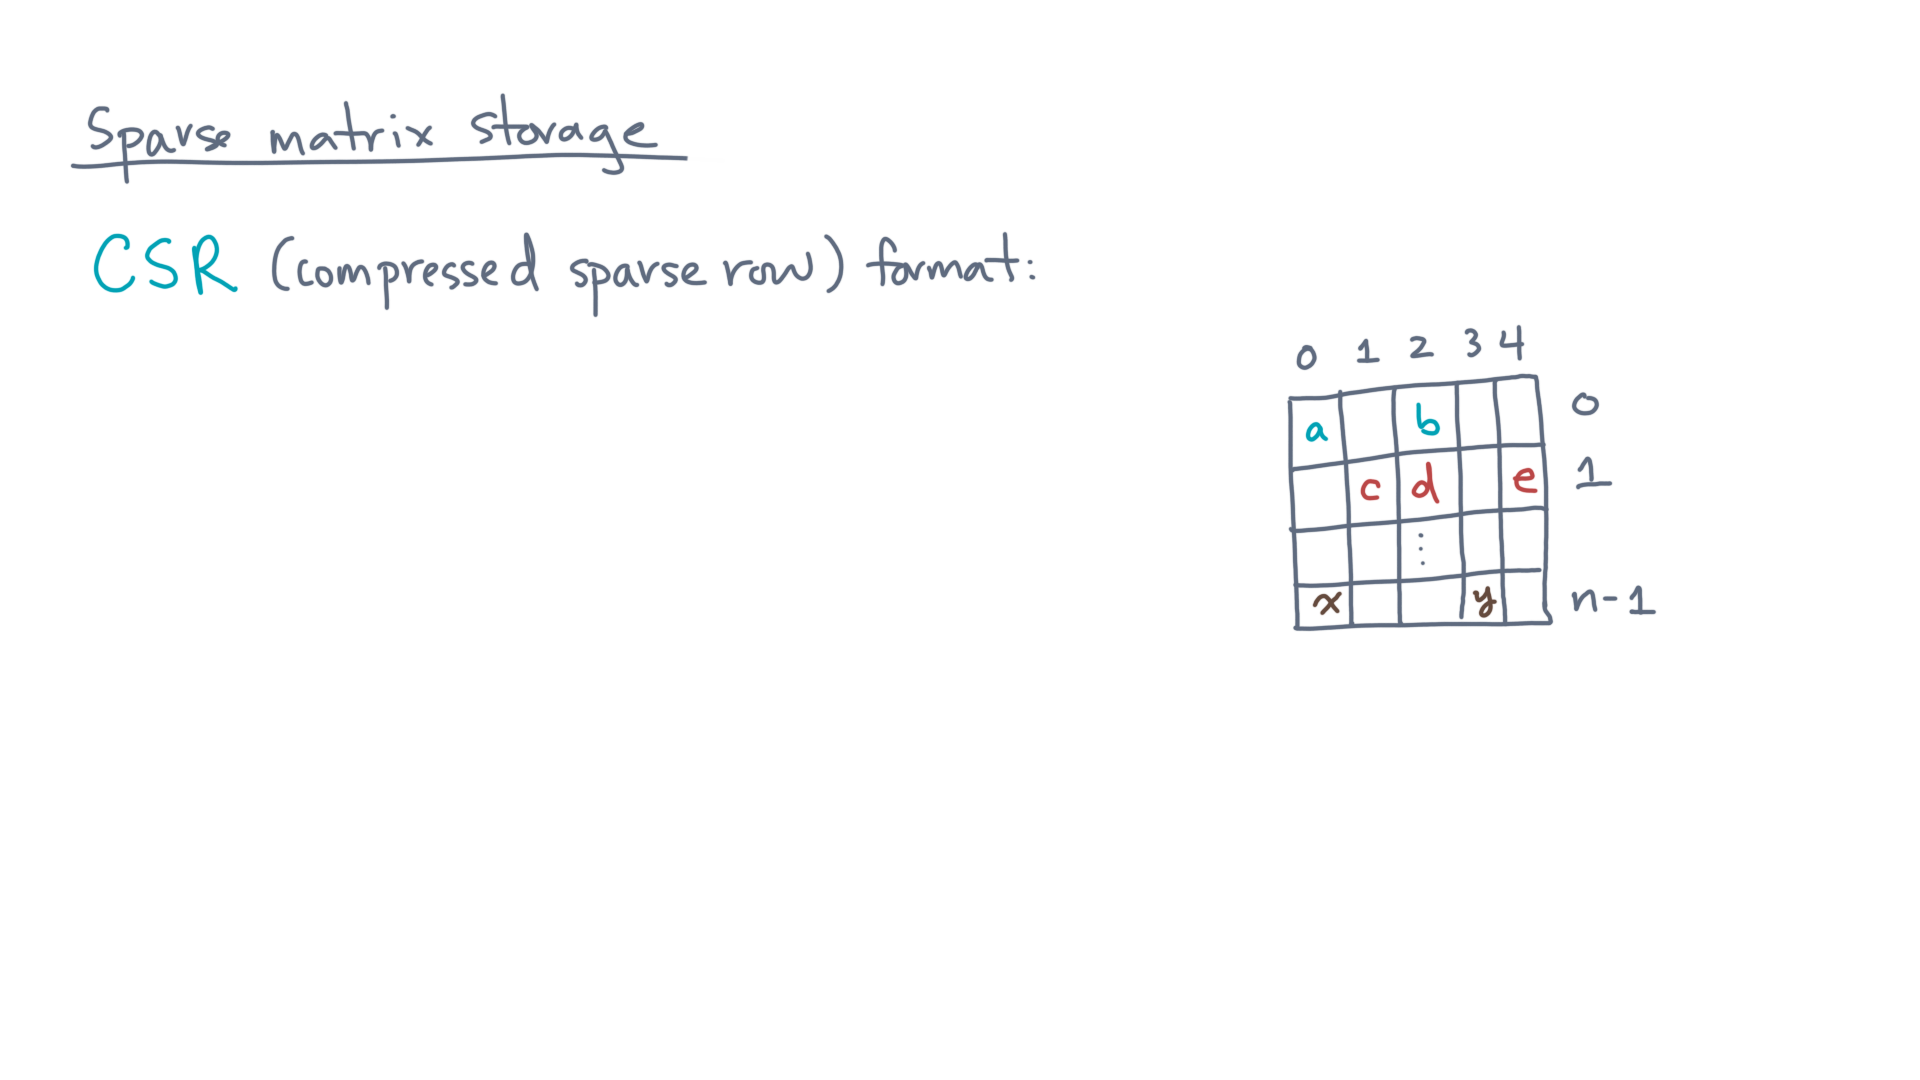 Sparse matrix storage
CSR (compressed sparse row) format:
0 1 2 3 4
a b 0
c d e 1
⋮
x y n-1